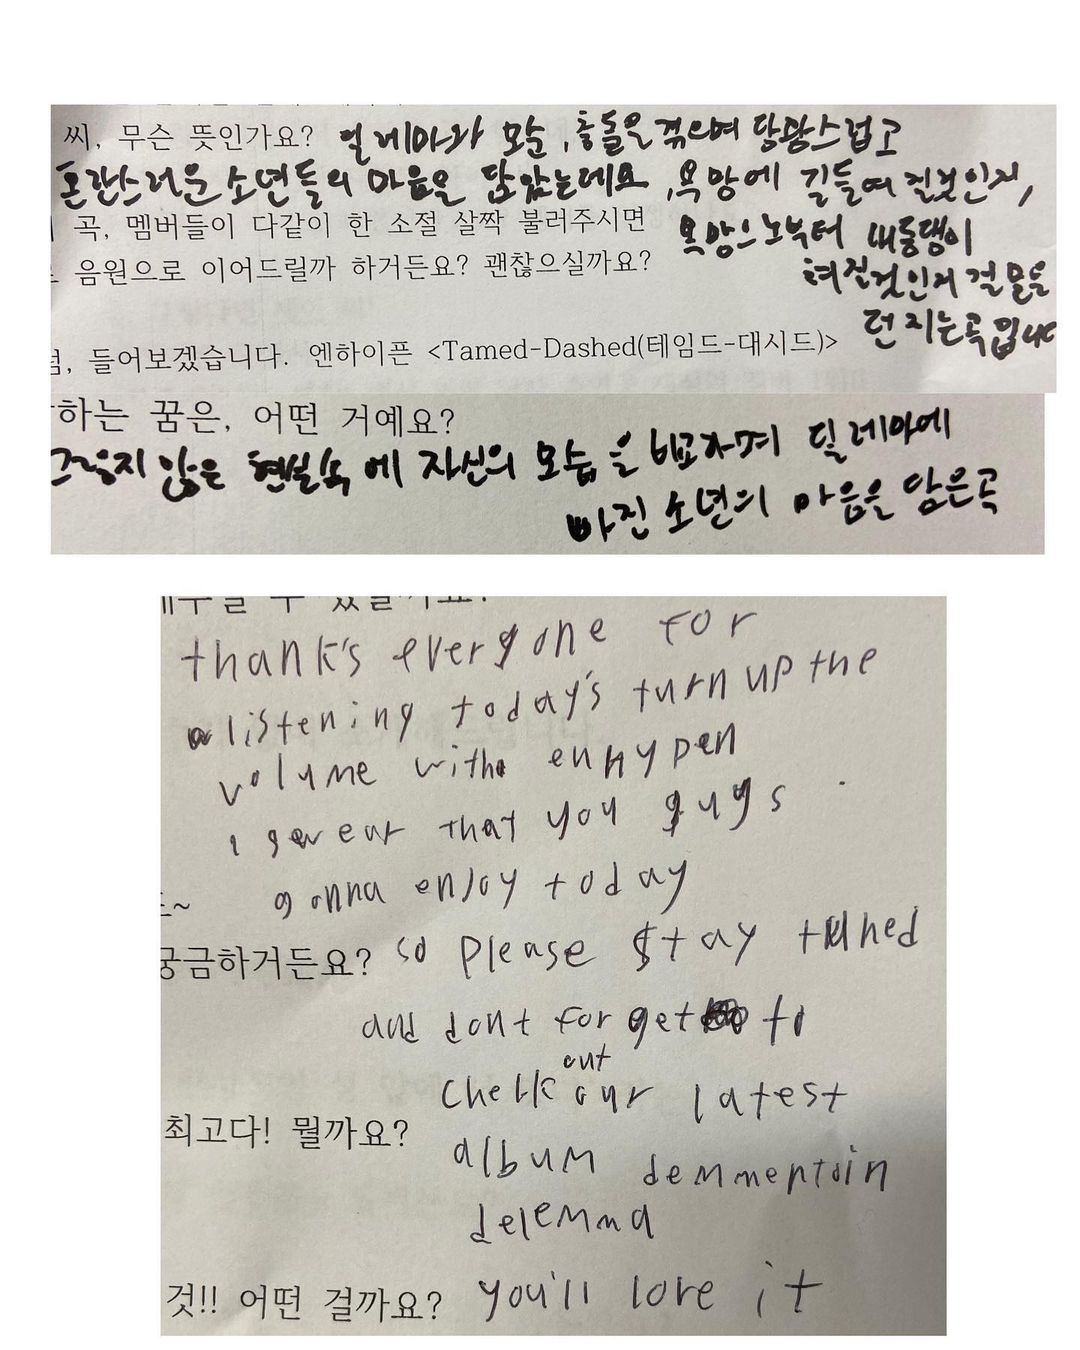 씨, 무슨 뜻인가요? 딜레마와 모순, 충돌을 겪으며 당황스럽고
혼란스러운 소년들의 마음을 담았는데요, 욕망에 길들여질것인지,
곡, 멤버들이 다같이 한 소절 살짝 불러주시면 욕망으로부터 내동댕이
음원으로 이어드릴까 하거든요? 괜찮으실까요? 쳐질것인지 질문을
던지는곡입니다
, 들어보겠습니다. 엔하이픈 <Tamed-Dashed(테임드-대시드)>
하는 꿈은, 어떤 거예요?
그렇지 않은 현실속에 자신의 모습을 비교하며 딜레마에
빠진 소년의 마음을 담은곡
thank's everyone for
listening today's turn up the
volume with enhypen
i swear that you guys
gonna enjoy today
~
궁금하거든요? so please stay tuned
and dont forget to
check out our latest
최고다! 뭘까요?
album demmentoin
delemma
것!! 어떤 걸까요? you'll love it